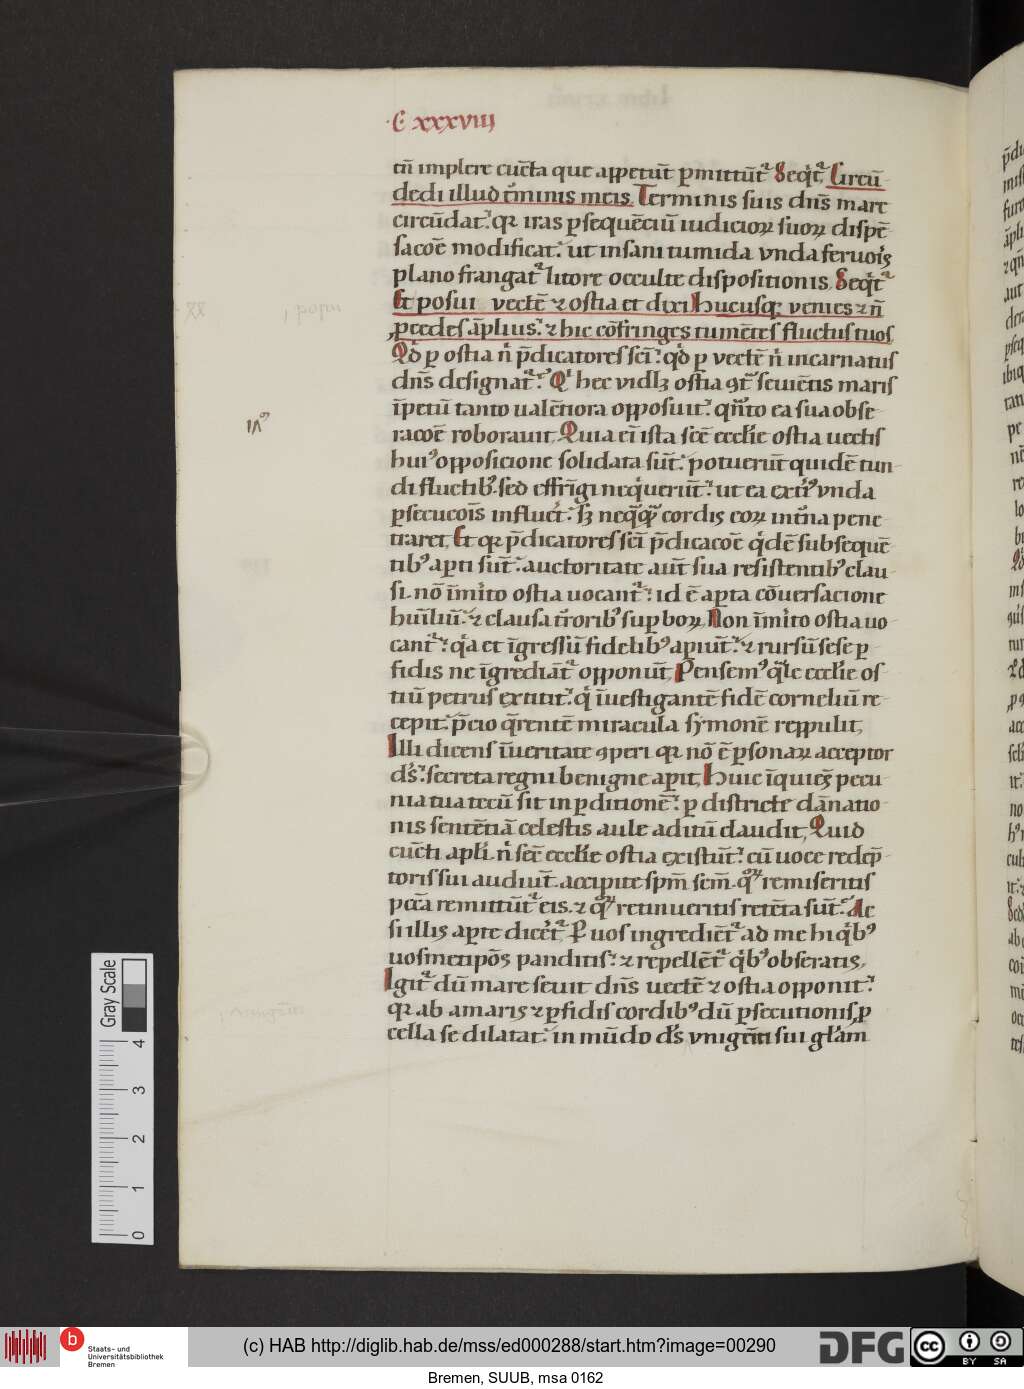 ·C· xxxviij
tn̄ implere cūcta que appetūt ꝑmittūtᷣ Seqᷓtᷣ Circū
dedi illud tᷣminis meis. Terminis suis dn̄s mare
circūdat: qꝛ iras ꝑsequēciū iudicioꝝ suoꝝ dispē
sacōe modificat: ut insani tumida vnda feruoꝭ
plano frangatᷣ litore occulte dispositionis, Seqᷓtᷣ
Et posui vectē ⁊ ostia et dixi Hucusqꝫ venies ⁊ n̄
ꝓcedes āplius: ⁊ hic cōfringes tumētes fluctus tuos,
Qd̄ ꝑ ostia nͥ p̄dicatores scī: qd̄ ꝑ vectē nͥ incarnatus
dn̄s designatᷣ: Qͥ hec vidlꝫ ostia ꝯtᷓ seuiētis maris
īpetū tanto ualētiora opposuit: qn̄to ea sua obse-
racōe roborauit, Quia eī ista scē ecclīe ostia uectis
huiꝰ opposicione solidata sūt: potuerūt quidē tun-
di fluctibꝰ. sed effrīgi neqͥuerūt: ut ea extiꝰ vnda
ꝑsecucoīs influetͥ: sꝫ neqᷓqᷓꝫ cordis eoꝝ intīna pene
traret, Et qꝛ p̄dicatores scī p̄dicacōe qͥdē subsequē
tibꝰ aꝑti sūt: auctoritate aūt sua resistentibꝰ clau
si. nō īmͥito ostia uocantᷣ: id ē aꝑta cōuersacione
huīliū: ⁊ clausa tͬroribꝰ suꝑboꝝ, Non īmͥito ostia uo
cantᷣ: qͥa et īgressū fidelibꝰ aꝑiūtᷣ: ⁊ rursū sese ꝑ-
fidis ne īgrediātᷣ opponūt, Pensemꝰ qᷓle ecclīe os-
tiū petrus extitit: qͥ īuestigantē fidē corneliū re-
cepit: p̄cio qͣrentē miracula symonē reppulit,
Illi dicens īueritate ꝯperi qꝛ nō ē ꝑsonaꝝ acceptor
ds̄: secreta regni benigne aꝑit, Huic īquiēs pecu-
nia tua tecū sit in ꝑditionē: ꝑ districte dānatio-
nis sentētiā celestis aule aditū claudit, Quid
cūcti apli. nͥ scē ecclīe ostia existūt: cū uoce redēp-
toris sui audiūt. accipite spm̄ scm̄. qᷓꝝ remiseritis
pcc̄a remittūtᷣ eis. ⁊ qᷓꝝ retinueritis retēta sūt: Ac
si illis aꝑte dicētᷣ P uos ingrediētᷣ ad me hi qͥbꝰ
uosmetip̄os panditis: ⁊ repellētᷣ qͥbꝰ obseratis,
Igitᷣ dū mare seuit dn̄s uectē ⁊ ostia opponit:
qꝛ ab amaris ⁊ ꝑfidis cordibꝰ dū ꝑsecutionis ꝓ
cella se dilatat: in mūdo ds̄ vnigēiti sui glām
Gray Scale
4
3
2
1
0
b
Staats- und
Universitätsbibliothek
Bremen
(c) HAB http://diglib.hab.de/mss/ed000288/start.htm?image=00290
DFG
cc
BY SA
Bremen, SUUB, msa 0162